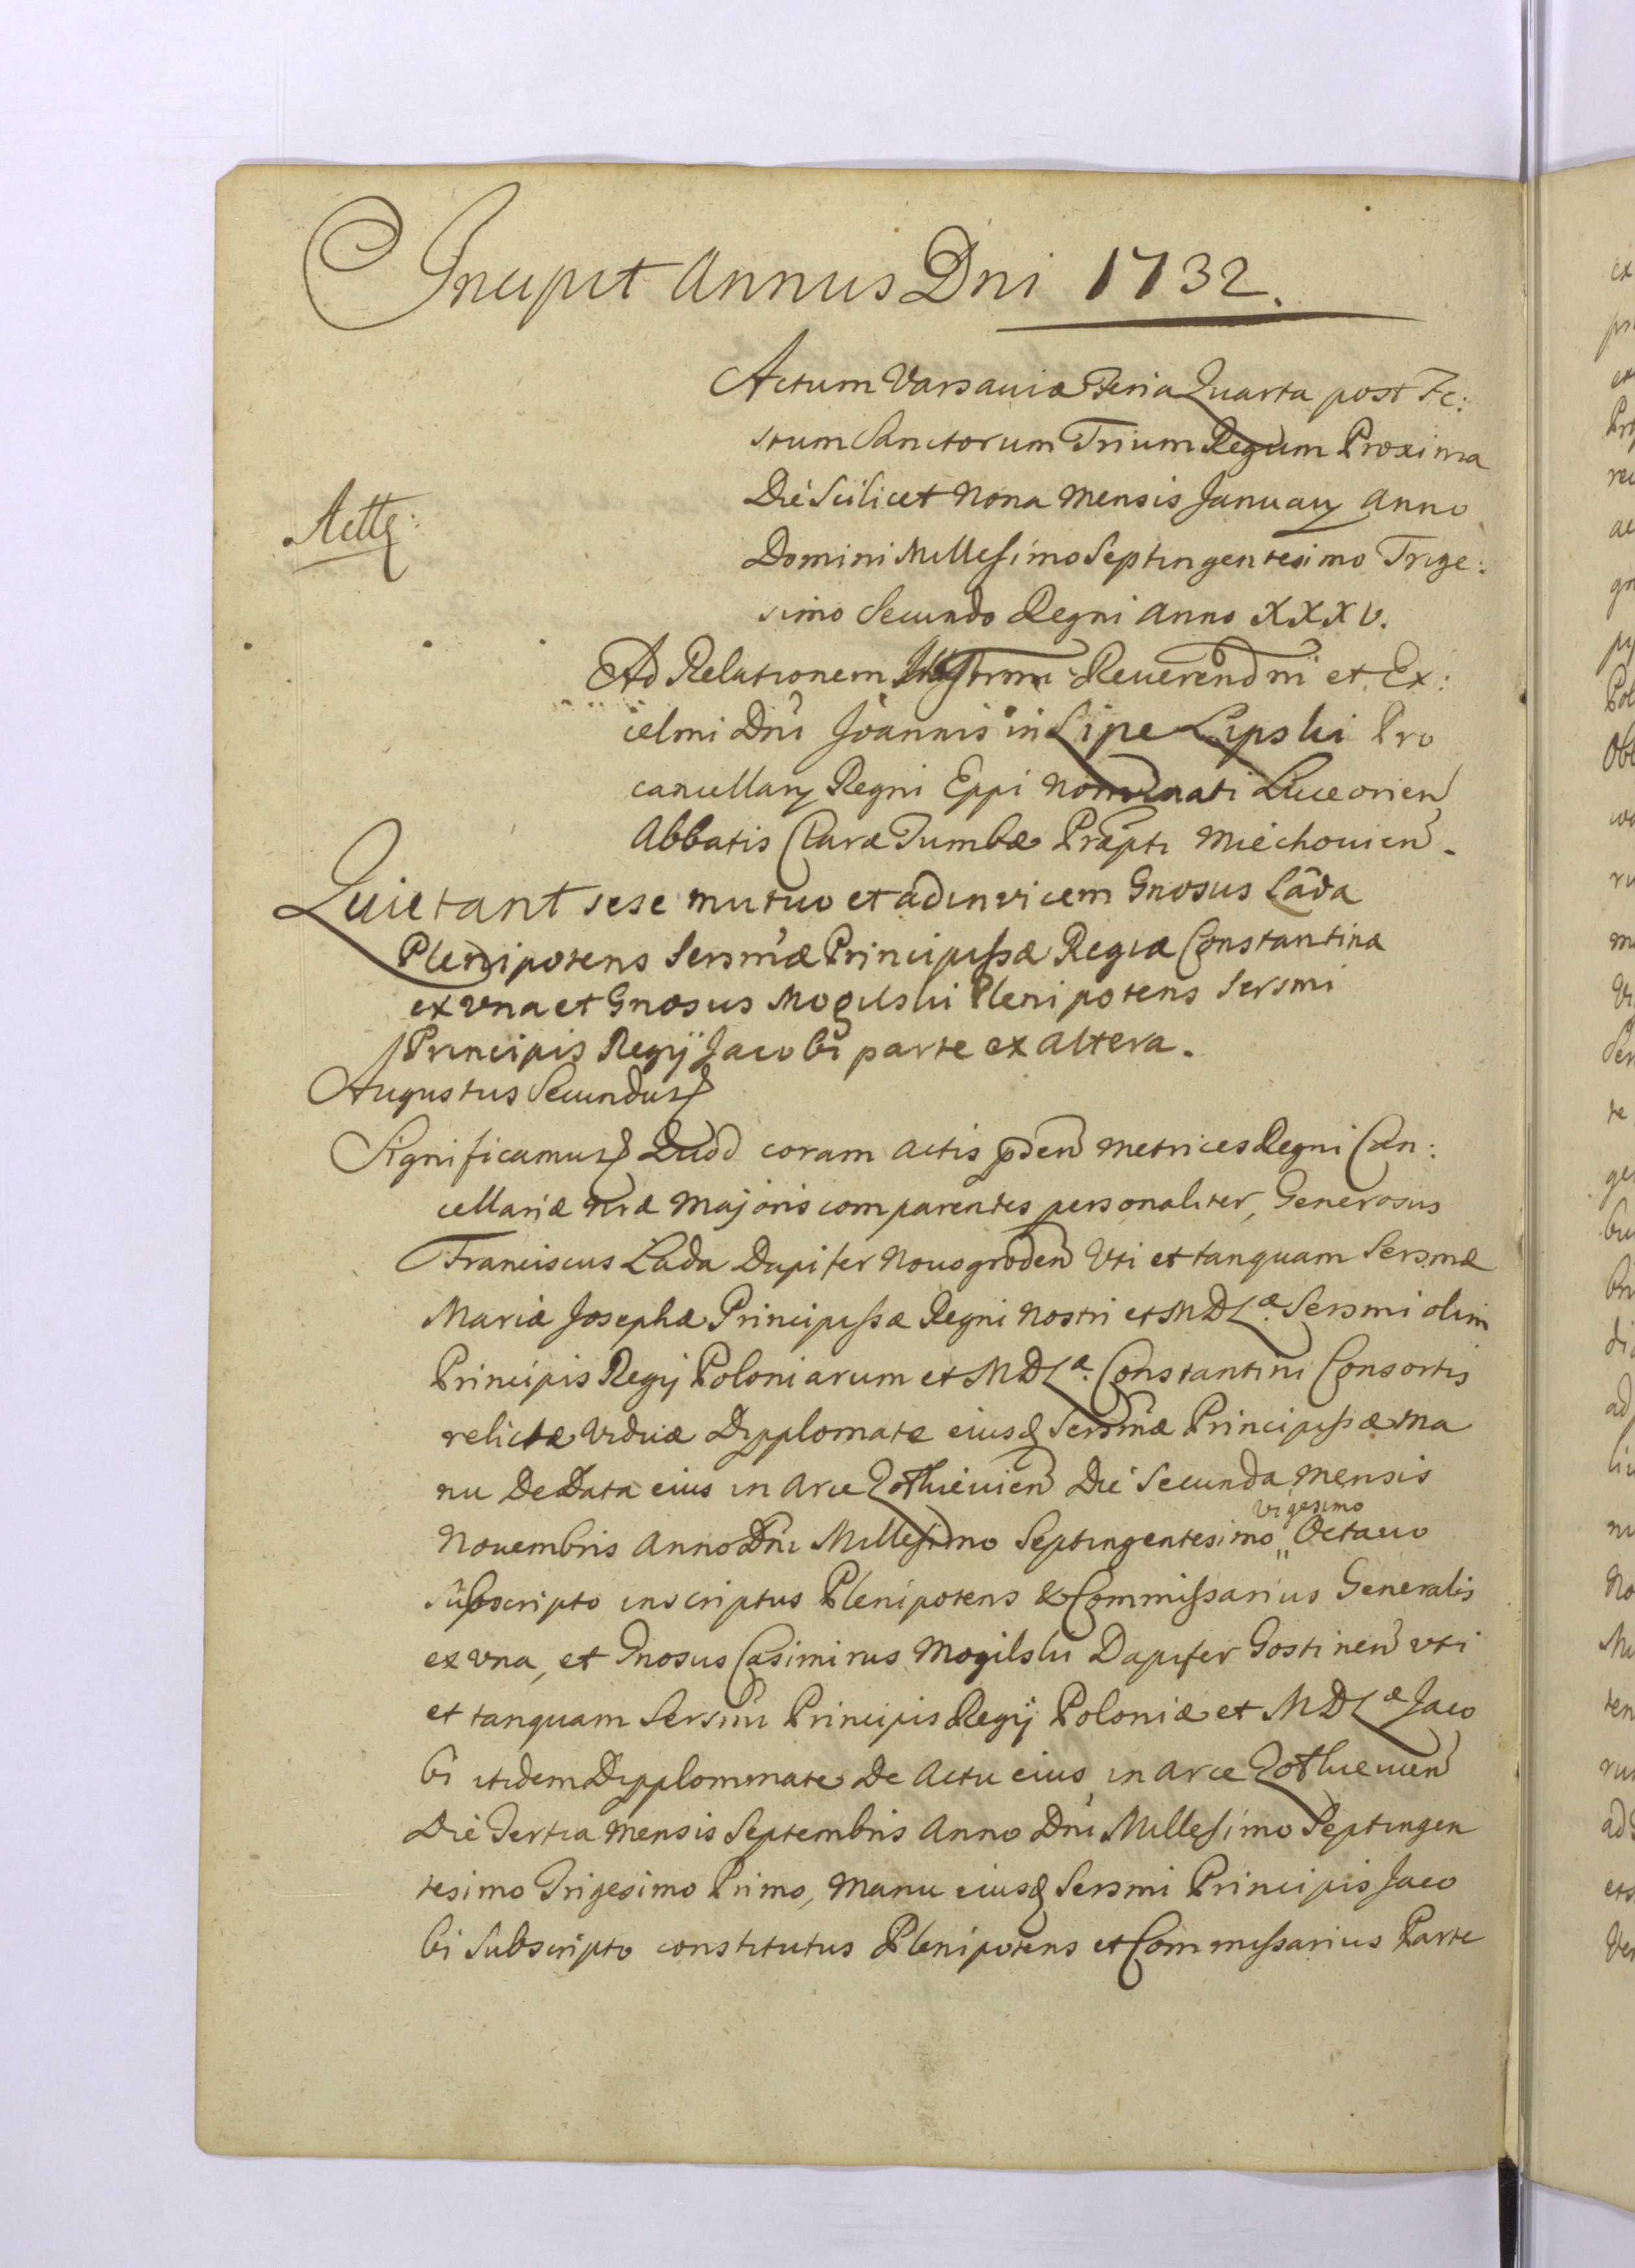 Incipit Annus Dni 1732.
Actum Varsaviæ Feria Quarta post Fe:
stum Sanctorum Trium Regum Proxima
Die Scilicet Nona Mensis January Anno
Domini Millesimo Septingentesimo Trige:
simo Secundo Regni Anno XXXV.
Ad Relationem Reverendmi et Ex:
celmi Dni Joannis in Lipe Lipski Pro
cancellary Regni Eppi Nominati Luceorien
Abbatis Claræ Tumbæ Præpti Miechovien.
Quietant sese mutuo et ad invicem Gnosus Lada
Plenipotens Sersmæ Principissæ Regiæ Constantinæ
ex una et Gnosus Mogilski Plenipotens Sersmi
Principis Regij Jacobi parte ex altera.
Augustus Secundus
Significamus Quod coram actis pden Metrices Regni Can:
cellariæ nræ Majoris comparentes personaliter, Generosus
Franciscus Lada Dapifer Novogroden Uti et tanquam Sersmæ
Mariæ Josephæ Principissæ Regni Nostri et MDLæ. Sersmi olim
Principis Regij Poloniarum et MDLæ. Constantini Consortis
relictæ Viduæ Dypplomate eiusq Sersmæ Principissæ Ma
nu De Data eius in Arce Zolkievien Die Secunda Mensis
Novembris Anno Dni Millesimo Septingentesimo vigesimo Octavo
Subscripto inscriptus Plenipotens & Commissarius Generalis
ex una, et Gnosus Casimirus Mogilski Dapifer Gostinen uti
et tanquam Sersmi Principis Regij Poloniæ et MDLæ Jaco
bi itidem Dypplommate De Actu eius in Arce Zolkievien
Die Tertia Mensis Septembris Anno Dni Millesimo Septingen
tesimo Trigesimo Primo, Manu eiusq Sersmi Principis Jaco
bi Subscripto constitutus Plenipotens et Commissarius Parte